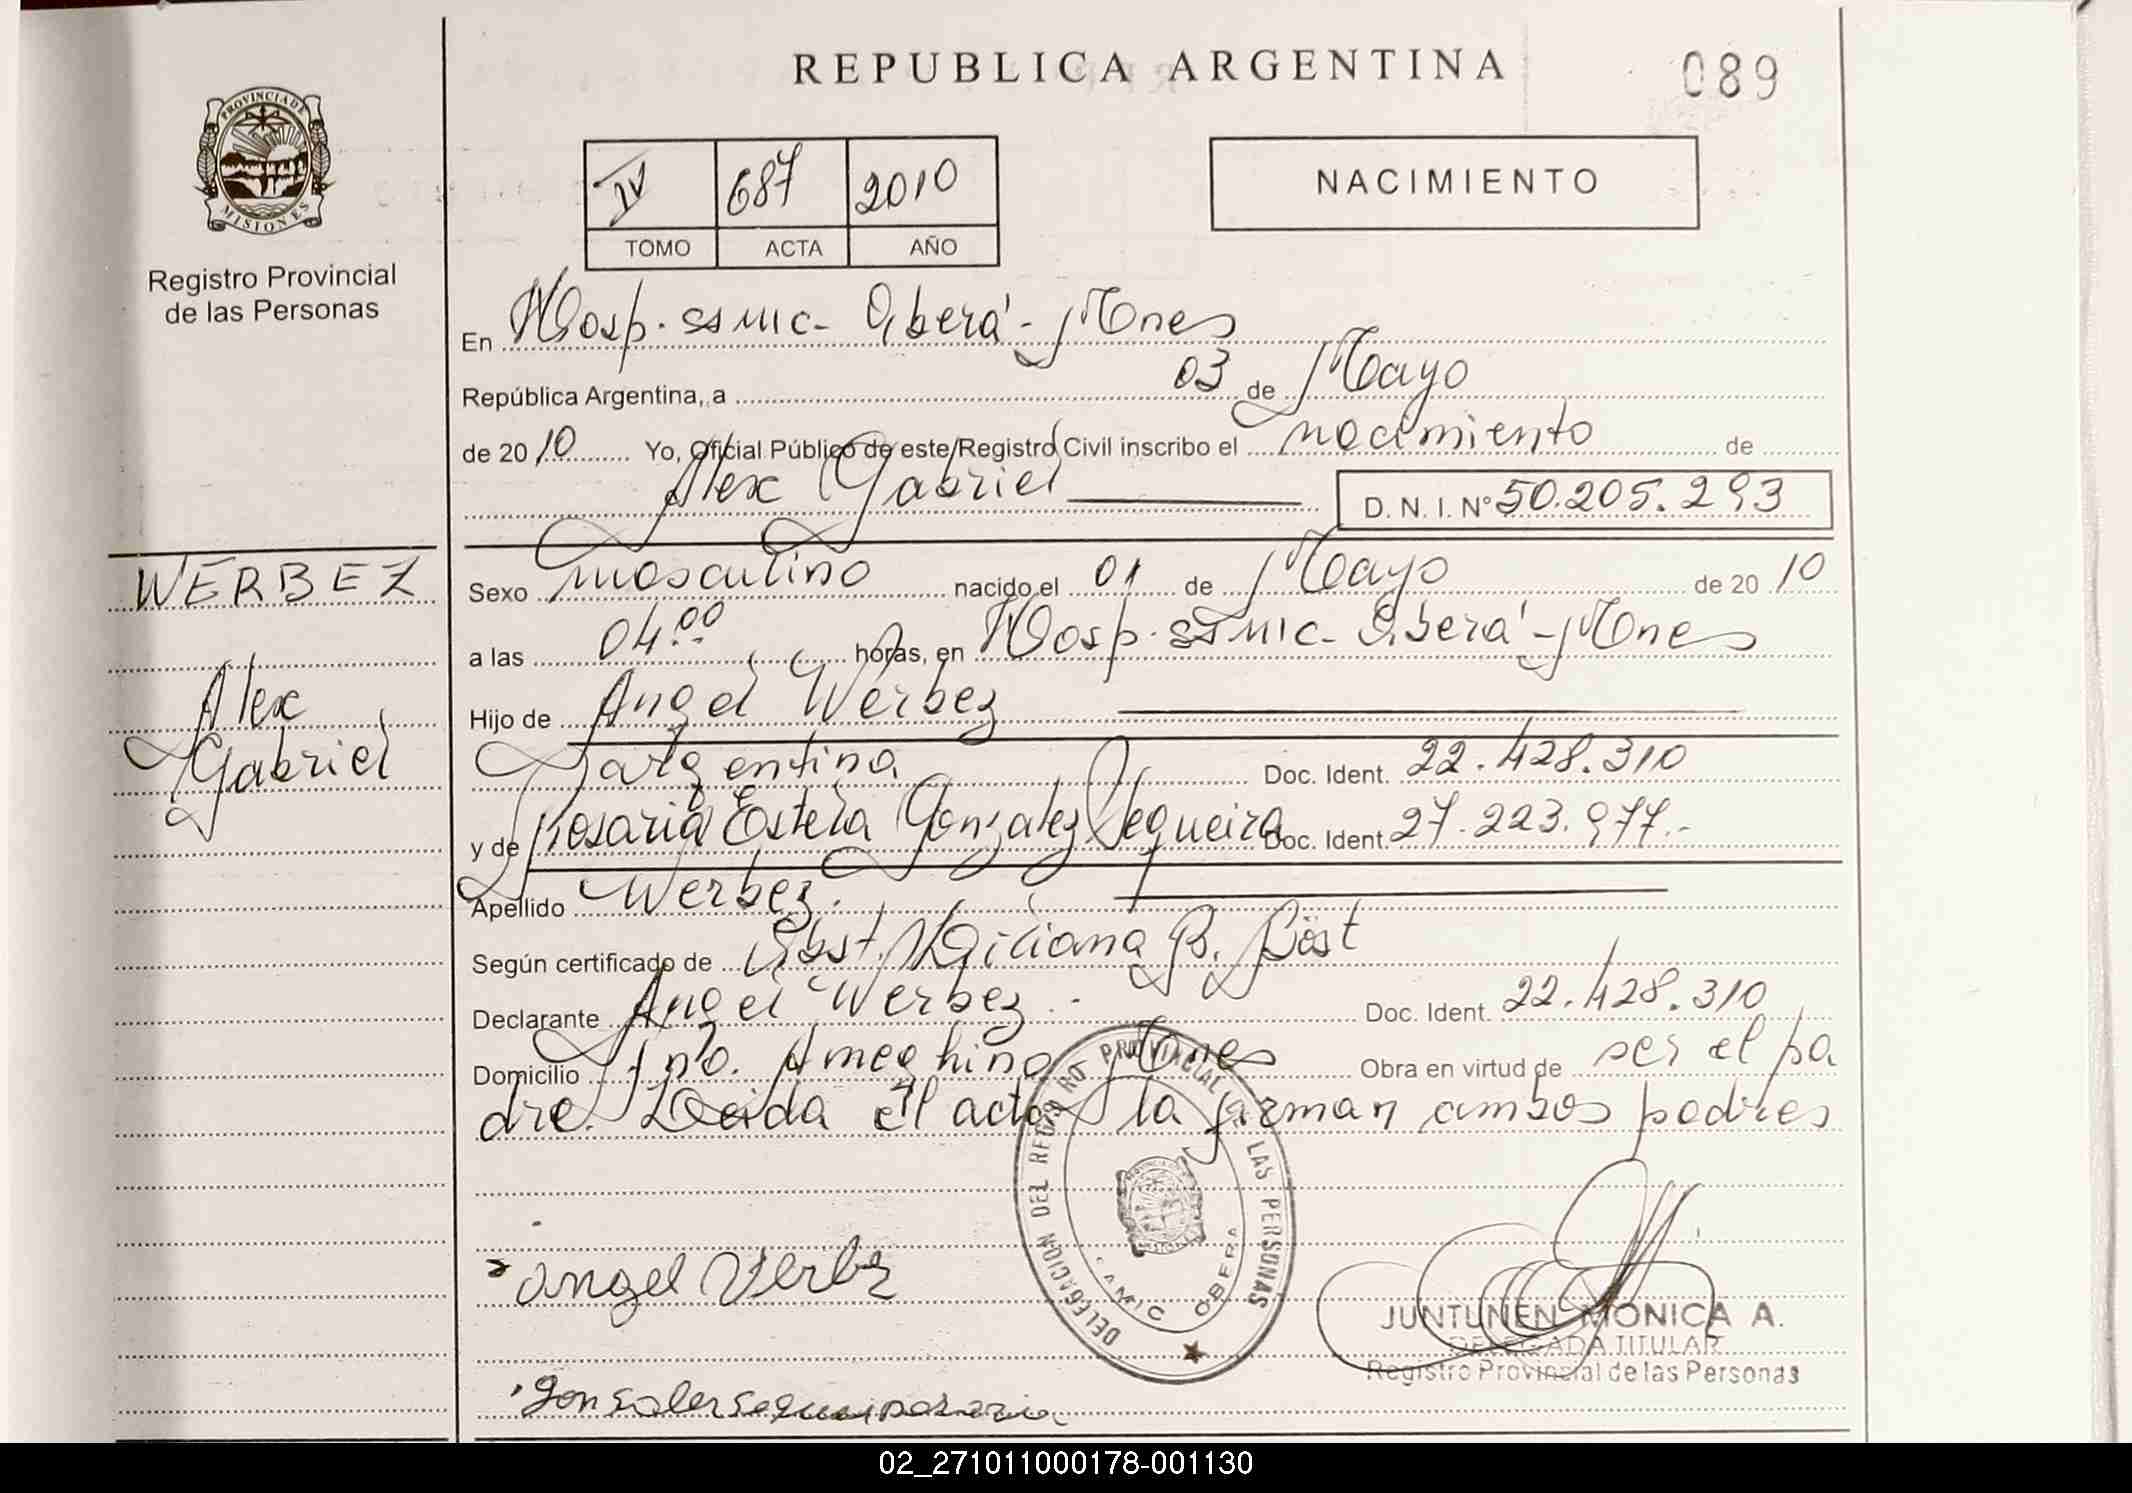 REPUBLICA ARGENTINA
089
PROVINCIA DE MISIONES
Registro Provincial
de las Personas
IV 687 2010
TOMO ACTA AÑO
NACIMIENTO
En Hosp. SAMIC - Oberá - Mnes
República Argentina, a 03 de Mayo
de 2010 Yo, Oficial Público de este Registro Civil inscribo el nacimiento de
Alex Gabriel D. N. I. Nº 50.205.293
WERBEZ
Alex
Gabriel
Sexo masculino nacido el 01 de Mayo de 2010
a las 04.00 horas, en Hosp. SAMIC - Oberá - Mnes
Hijo de Angel Werbez
argentina Doc. Ident. 22.428.310
y de Rosaria Estela Gonzalez Sequeira Doc. Ident. 27.223.977.-
Apellido Werbez.
Según certificado de Obst. B. Böst
Declarante Angel Werbez. Doc. Ident. 22.428.310
Domicilio Fno. Ameghino Mnes Obra en virtud de ser el pa
dre. Leida el acta la firman ambos padres
DELEGACION DEL REGISTRO PROVINCIAL DE LAS PERSONAS
SAMIC OBERA
angel Verbz
JUNTUNEN MONICA A.
DELEGADA TITULAR
Registro Provincial de las Personas
02_271011000178-001130